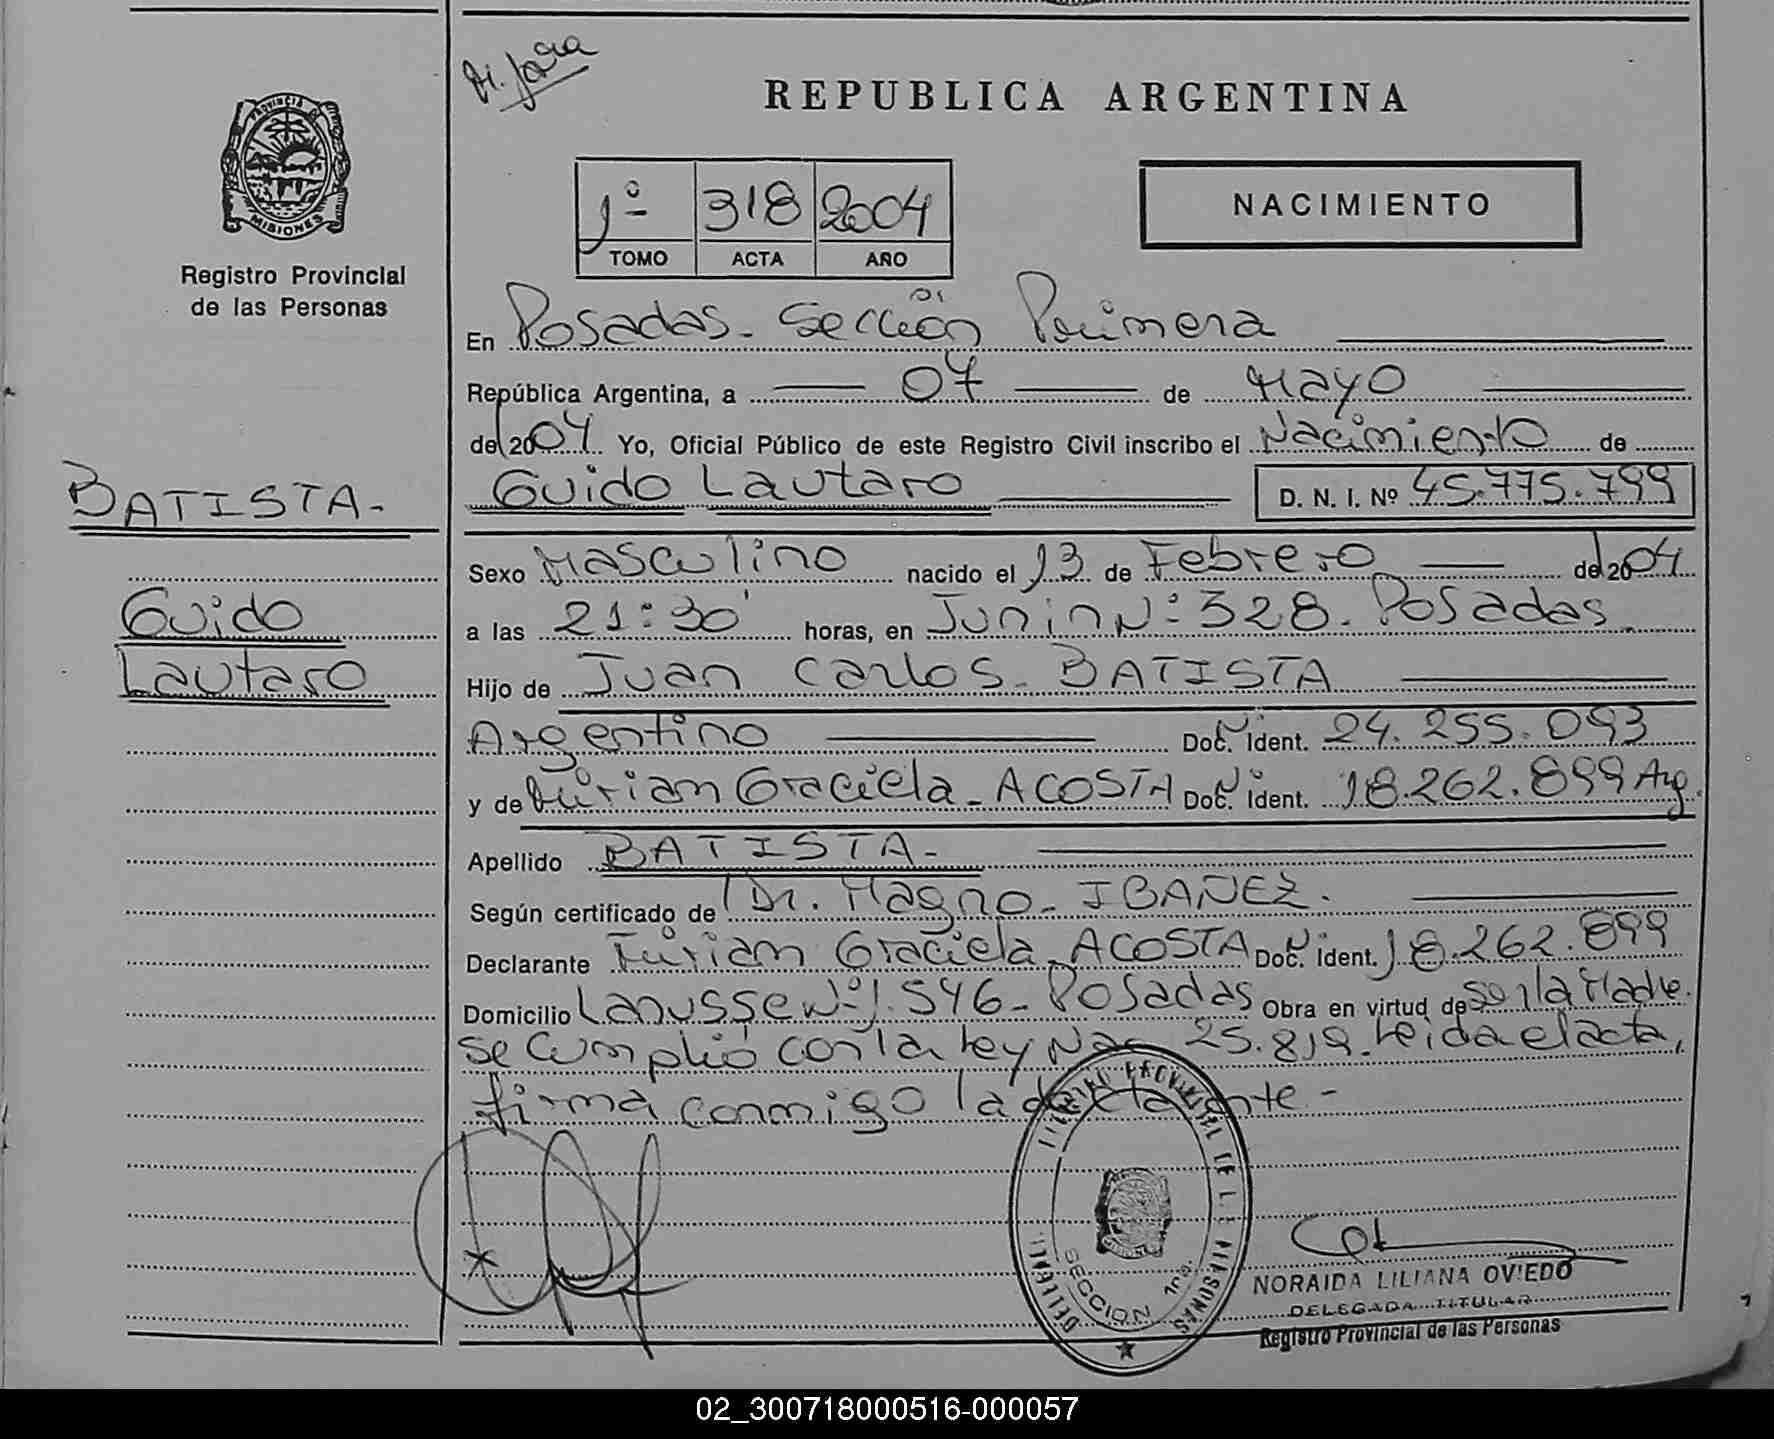 REPUBLICA ARGENTINA
PROVINCIA
MISIONES
Registro Provincial
de las Personas
1º 318 2004
TOMO ACTA AÑO
NACIMIENTO
En Posadas - Sección Primera
República Argentina, a 07 de Mayo
de 2004 Yo, Oficial Público de este Registro Civil inscribo el Nacimiento de
Guido Lautaro D. N. I. Nº 45.775.799
BATISTA -
Guido
Lautaro
Sexo Masculino nacido el 13 de Febrero de 2004
a las 21:30' horas, en Junin Nº 328. Posadas
Hijo de Juan Carlos - BATISTA
Argentino Doc. Ident. 24.255.093
y de Mirian Graciela - ACOSTA Doc. Ident. 18.262.899 Arg.
Apellido BATISTA -
Según certificado de Dr. Magno - IBAÑEZ.
Declarante Mirian Graciela - ACOSTA Doc. Ident. 18.262.899
Domicilio Lanusse Nº 1.546 - Posadas Obra en virtud de ser la Madre.
se cumplió con la Ley Nac 25.819. Leida el acta,
firma conmigo la declarante -
REGISTRO PROVINCIAL DE LAS PERSONAS
SECCION 1ra.
NORAIDA LILIANA OVIEDO
DELEGADA TITULAR
Registro Provincial de las Personas
02_300718000516-000057